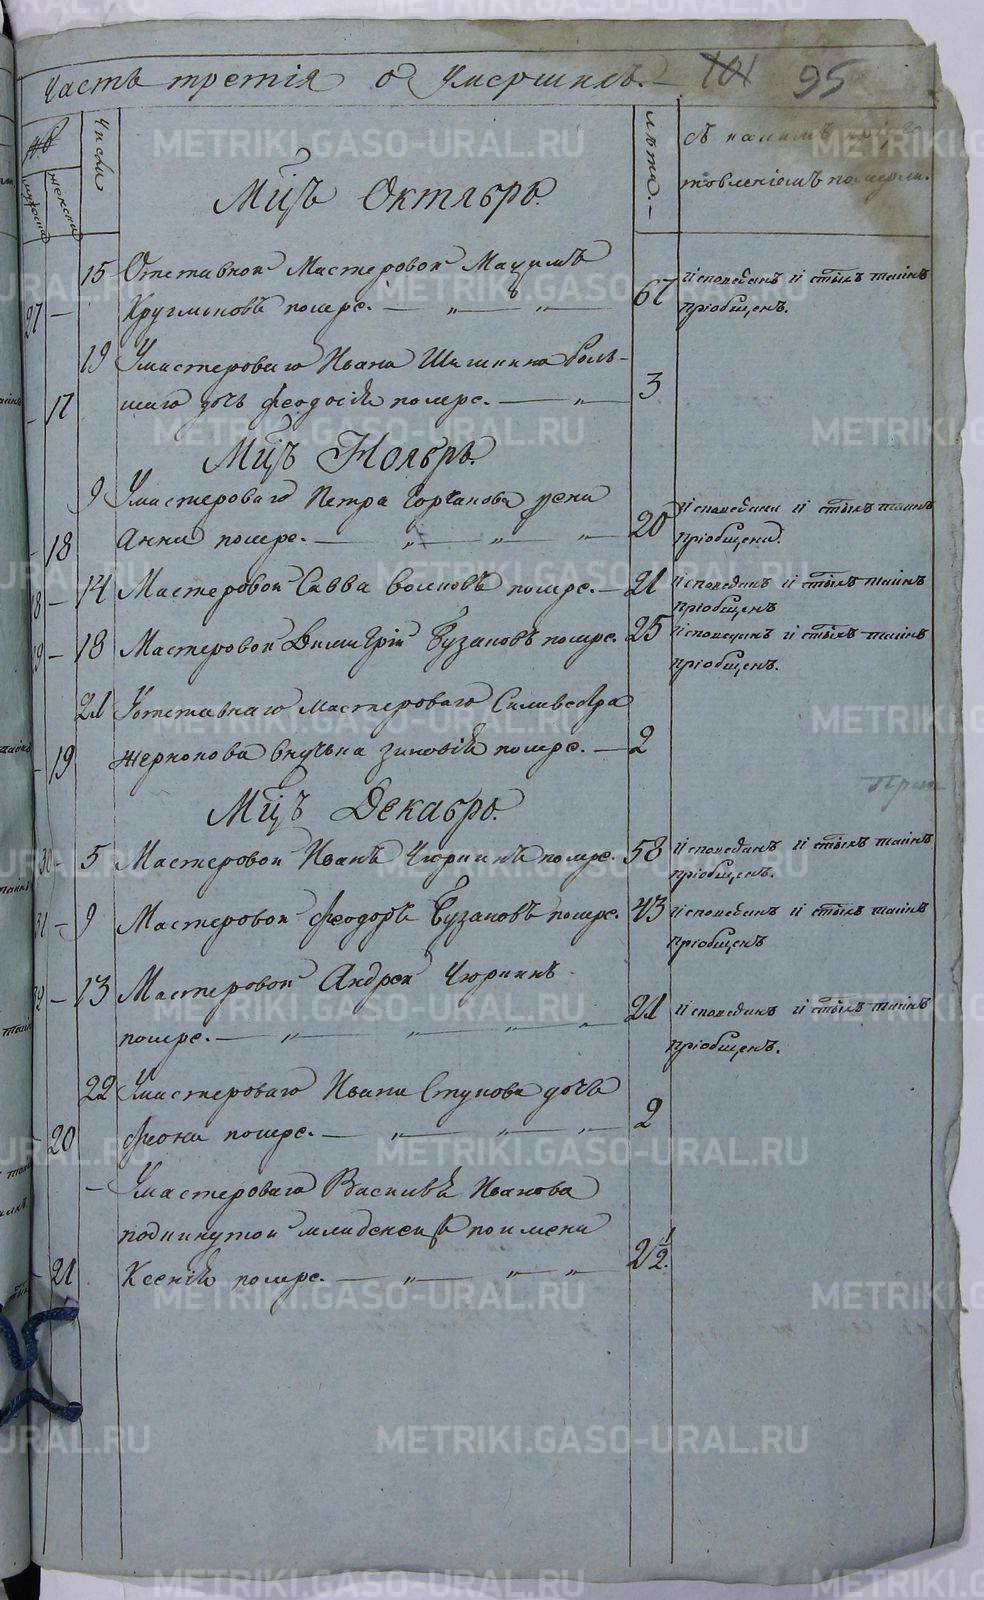 Часть третія о умершихъ. 101 95
№
мужеска
женска
Числа
Лѣта.
съ какимъ
товленіемъ померли.
Мцъ Октябрь.
15 Отставной Мастеровой Маѯимъ
27 — померъ. — „ — „ — 67 исповеданъ и стыхъ таинъ
пріобщенъ.
19 Умастероваго Ивана Боль-
— 17 шаго дочь Феодосія помре. — „ 3
Мцъ Ноябрь.
9 Умастероваго Петра Горчакова жена
— 18 Анна помре. — „ — „ — „ 20 исповедана и стыхъ таинъ
пріобщена.
28 — 14 Мастеровой Савва Волковъ помре. — 21 исповеданъ и стыхъ таинъ
пріобщенъ
29 — 18 Мастеровой Димитрій Бузановъ помре. 25 исповеданъ и стыхъ таинъ
пріобщенъ.
21 Уотставнаго мастероваго Силивестра
— 19 внучька зиновія помре. — 2
Мцъ Декабрь.
30 — 5 Мастеровой Иванъ Чюринъ помре. 58 исповеданъ и стыхъ таинъ
пріобщенъ.
31 — 9 Мастеровой Феодоръ Бузановъ помре. 43 исповеданъ и стыхъ таинъ
пріобщенъ
32 — 13 Мастеровой Андрей Чюринъ
помре. — „ — „ — „ — „ 21 исповеданъ и стыхъ таинъ
пріобщенъ.
22 Умастероваго Ивана Ступова дочь
— 20 помре. — „ — „ — „ 2
— Умастероваго Василья Иванова
подкинутой младенецъ поимени
— 21 Ксенія помре. — „ — „ — „ 2 1/2.
METRIKI.GASO-URAL.RU